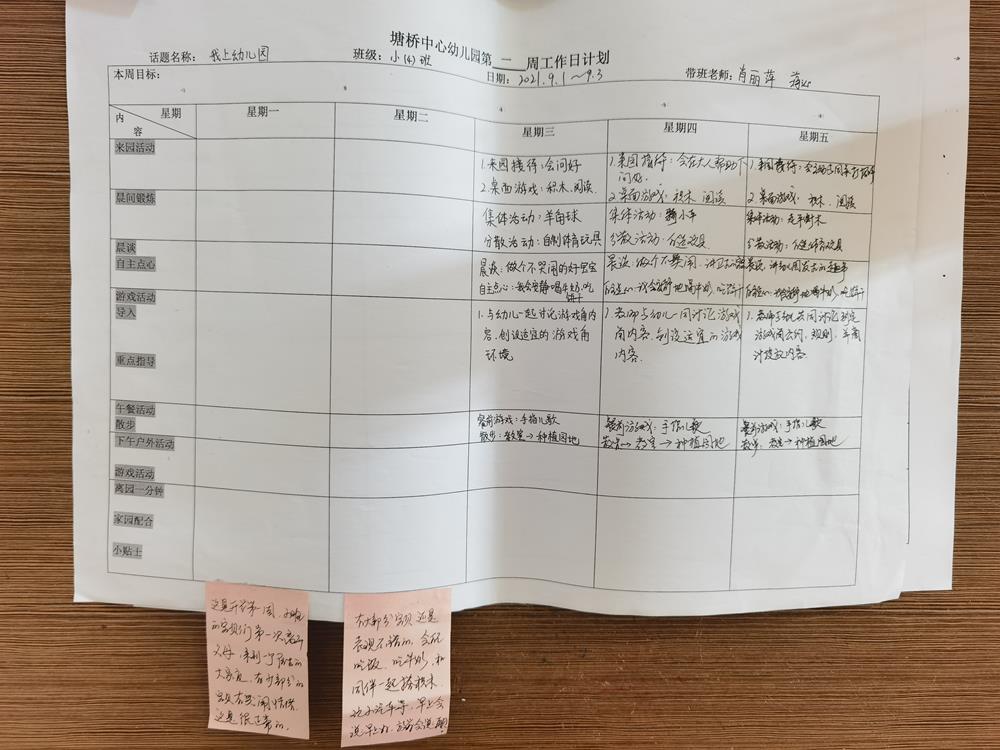 塘桥中心幼儿园第 一 周工作日计划
话题名称： 我上幼儿园 班级：小（4）班 日期：2021.9.1～9.3 带班老师：肖丽萍
本周目标：
星期 内容 星期一 星期二 星期三 星期四 星期五
来园活动
1.来园接待：会问好
2.桌面游戏：积木、阅读
1.来园接待：会在大人帮助下问好
2.桌面游戏：积木 阅读
1.来园接待：
2.桌面游戏：积木、阅读
晨间锻炼
集体活动：羊角球
分散活动：自制体育玩具
集体活动：骑小车
分散活动：自选玩具
集体活动：走平衡木
分散活动：自选体育玩具
晨谈
晨谈：做个不哭闹的好宝宝
晨谈：做个不哭闹、
自主点心
自主点心：我会安静喝牛奶、吃饼干
我会安静地喝牛奶、吃饼干
游戏活动
导入
重点指导
1.与幼儿一起讨论游戏角内容，创设适宜的游戏角环境
1.教师与幼儿一同讨论游戏角内容，创设适宜的游戏内容.
1.教师与幼儿共同讨论
游戏
午餐活动
餐前游戏：手指儿歌
餐前游戏：手指儿歌
餐前游戏：手指儿歌
散步
散步：教室→种植园地
散步→教室→种植园地
散步：教室→种植园地
下午户外活动
游戏活动
离园一分钟
家园配合
小贴士
这是开学第一周，
的宝贝们第一次离开
父母，来到一个陌生的
大家庭，有少部分的
宝贝有哭闹情绪，
这是很正常的.
有大部分宝贝还是
表现不错的，会玩
吃饭、吃牛奶，和
同伴一起搭积木
玩小汽车等，早上会
说早上好，